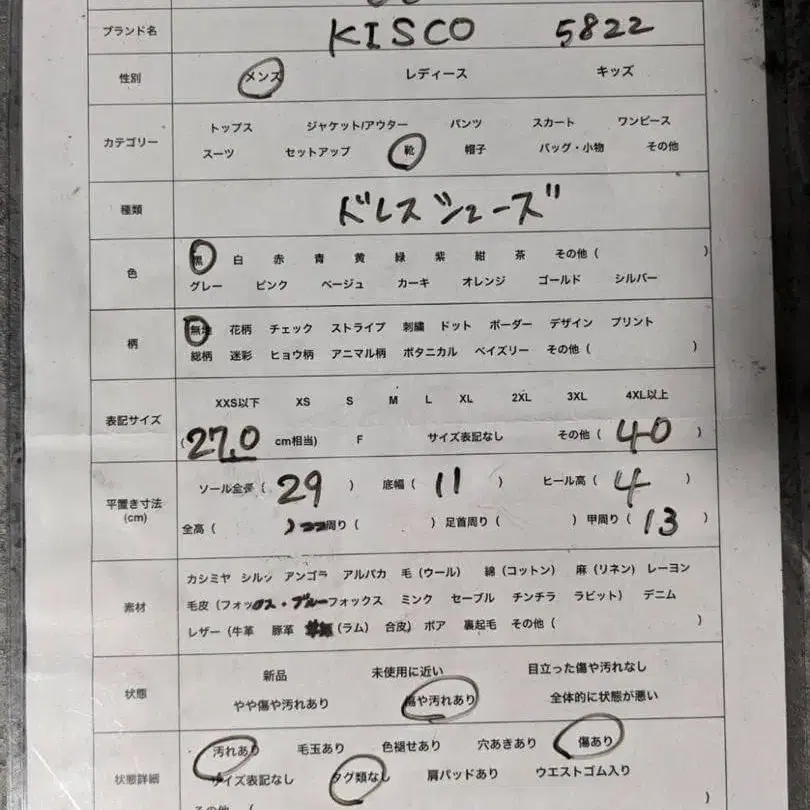 ブランド名 KISCO 5822
性別 メンズ レディース キッズ
カテゴリー トップス ジャケット/アウター パンツ スカート ワンピース
スーツ セットアップ 靴 帽子 バッグ・小物 その他
種類 ドレスシューズ
色 黒 白 赤 青 黄 緑 紫 紺 茶 その他 ( )
グレー ピンク ベージュ カーキ オレンジ ゴールド シルバー
柄 無地 花柄 チェック ストライプ 刺繍 ドット ボーダー デザイン プリント
総柄 迷彩 ヒョウ柄 アニマル柄 ボタニカル ペイズリー その他 ( )
表記サイズ XXS以下 XS S M L XL 2XL 3XL 4XL以上
(27.0 cm相当) F サイズ表記なし その他 ( 40 )
平置き寸法 (cm) ソール全長 ( 29 ) 底幅 ( 11 ) ヒール高 ( 4 )
全高 ( ) 周り ( ) 足首周り ( ) 甲周り ( 13 )
素材 カシミヤ シルク アンゴラ アルパカ 毛 (ウール) 綿 (コットン) 麻 (リネン) レーヨン
毛皮 (フォックス・ブルーフォックス ミンク セーブル チンチラ ラビット) デニム
レザー (牛革 豚革 (ラム) 合皮) ボア 裏起毛 その他 ( )
状態 新品 未使用に近い 目立った傷や汚れなし
やや傷や汚れあり 傷や汚れあり 全体的に状態が悪い
状態詳細 汚れあり 毛玉あり 色褪せあり 穴あきあり 傷あり
サイズ表記なし タグ類なし 肩パッドあり ウエストゴム入り
その他 ( )